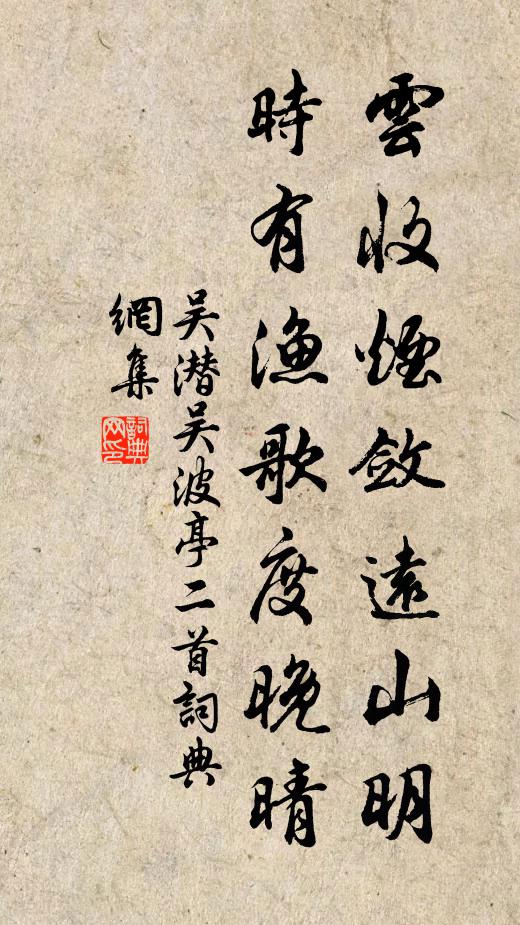 雲收煙斂遠山明
時有漁歌度晚晴
吴潛吴波亭二首詞典
網集
詞典
网印